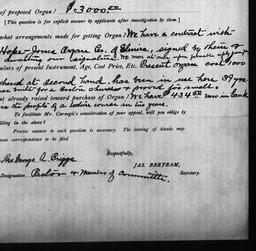 of proposed Organ? $3000.00
[This question is for explicit answer by applicants after investigation by them.]
what arrangements made for getting Organ? We have a contract with
Hope-Jones Organ Co. of Elmira, signed by them &
awaiting our signature.
culars of present Instrument, Age, Cost Price, Etc. Present organ cost 1000
second hand, has been in use here 39 yrs
was built for a Boston church & proved too small.
nt already raised toward purchase of Organ? We have $434.55 now in bank
the people of a lecture course in ten years.
To facilitate Mr. Carnegie's consideration of your appeal, will you oblige by
filling in the above?
Precise answer to each question is necessary. The leaving of blanks may
correspondence to be filed.
Respectfully,
JAS. BERTRAM,
Secretary.
Geo. A. Briggs
Designation. Pastor & Member of Committee